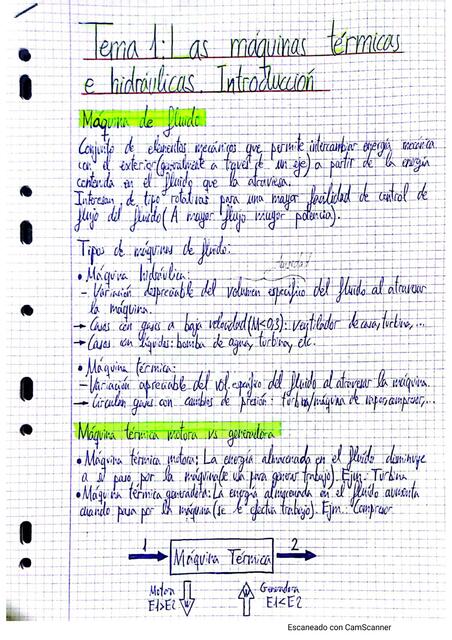 Tema 1: Las máquinas térmicas
e hidráulicas. Introducción
Máquina de fluido
Conjunto de elementos mecánicos que permite intercambiar energía mecánica
con el exterior (generalmente a través de un eje) a partir de la energía
contenida en el fluido que la atraviesa.
Interesan de tipo rotativas para una mayor facilidad de control de
flujo del fluido (A mayor flujo mayor potencia).
Tipos de máquinas de fluido:
• Máquina hidráulica:
- Variación despreciable del volumen específico del fluido al atravesar
la máquina.
→ Casos con gases a baja velocidad (M<0,3): ventilador de casa, turbina,...
→ Casos con líquidos: bomba de agua, turbina, etc.
• Máquina térmica:
- Variación apreciable del vol. específico del fluido al atravesar la máquina.
→ Circulan gases con cambios de presión: turbina/máquina de vapor, compresor,...
Máquina térmica motora vs generadora
• Máquina térmica motora: La energía almacenada en el fluido disminuye
a su paso por la máquina (se usa para generar trabajo). Ejm.: Turbina
• Máquina térmica generadora: La energía almacenada en el fluido aumenta
cuando pasa por la máquina (se le efectúa trabajo). Ejm.: Compresor
1 Máquina Térmica 2
Motora Generadora
E1>E2 E1<E2
Escaneado con CamScanner